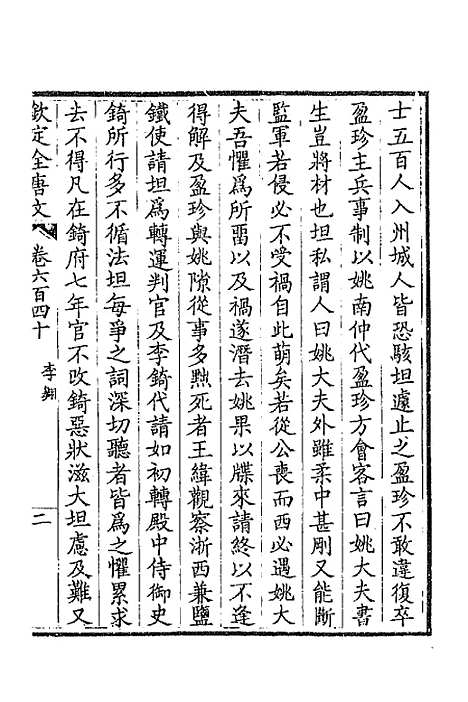 士五百人入州城人皆恐駭坦遽止之盈珍不敢違復卒
盈珍主兵事制以姚南仲代盈珍方會客言曰姚大夫書
生豈將材也坦私謂人曰姚大夫外雖柔中甚剛又能斷
監軍若侵必不受禍自此萌矣若從公喪而西必遇姚大
夫吾懼爲所畱以及禍遂潛去姚果以牒來請終以不逢
得解及盈珍與姚隙從事多黜死者王緯觀察浙西兼鹽
鐵使請坦爲轉運判官及李錡代請如初轉殿中侍御史
錡所行多不循法坦每爭之詞深切聽者皆爲之懼累求
去不得凡在錡府七年官不改錡惡狀滋大坦慮及難又
欽定全唐文 卷六百四十 李翺 二